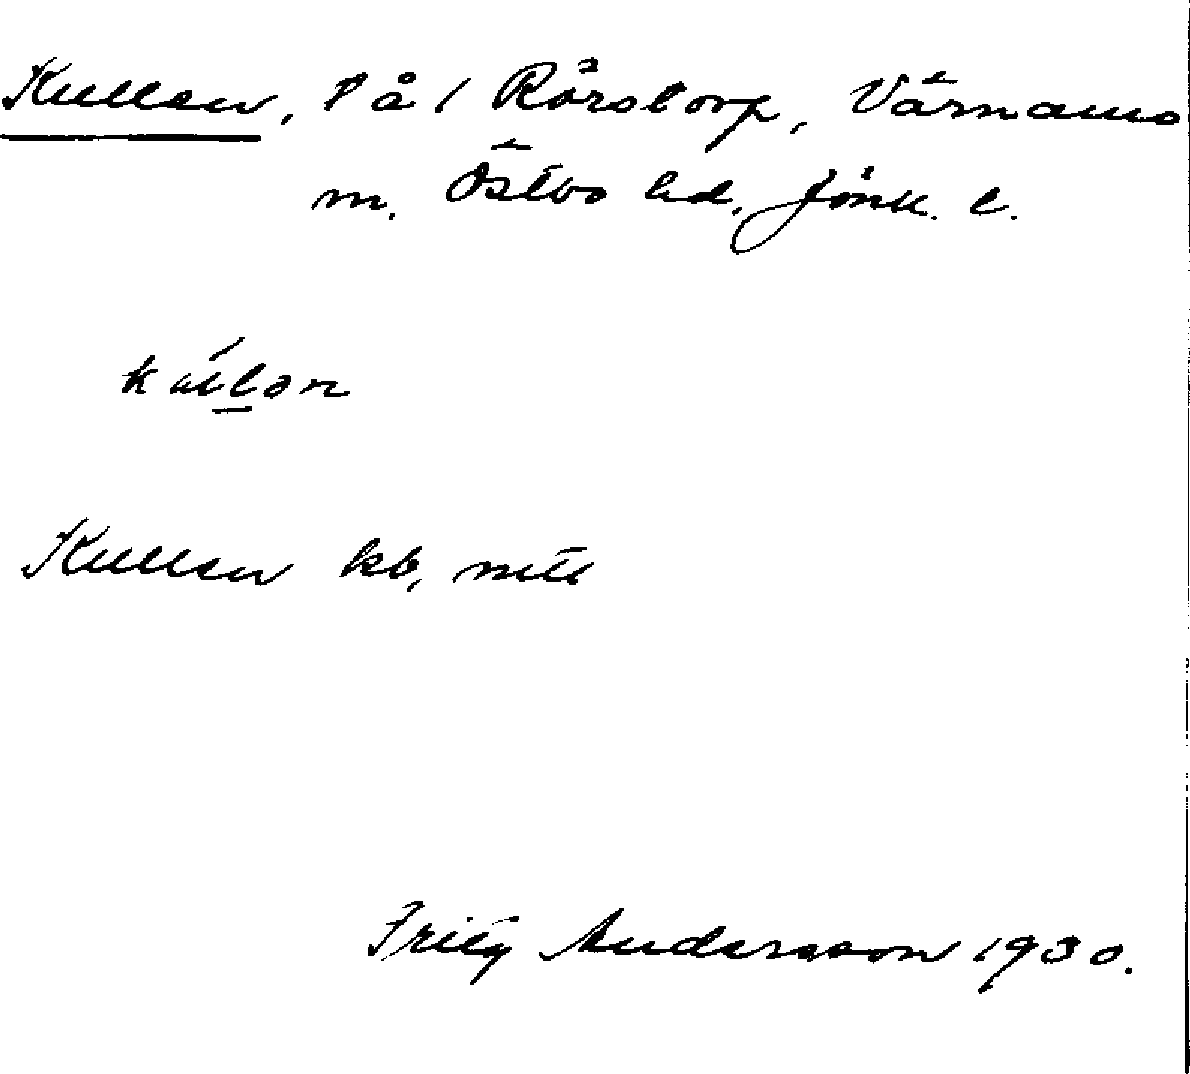 Kullen, l å / Rörstorp, Värnamo
m. Östbo hd, Jönk. l.
kullən
Kullen kb, mtl
Fritz Andersson 1930.